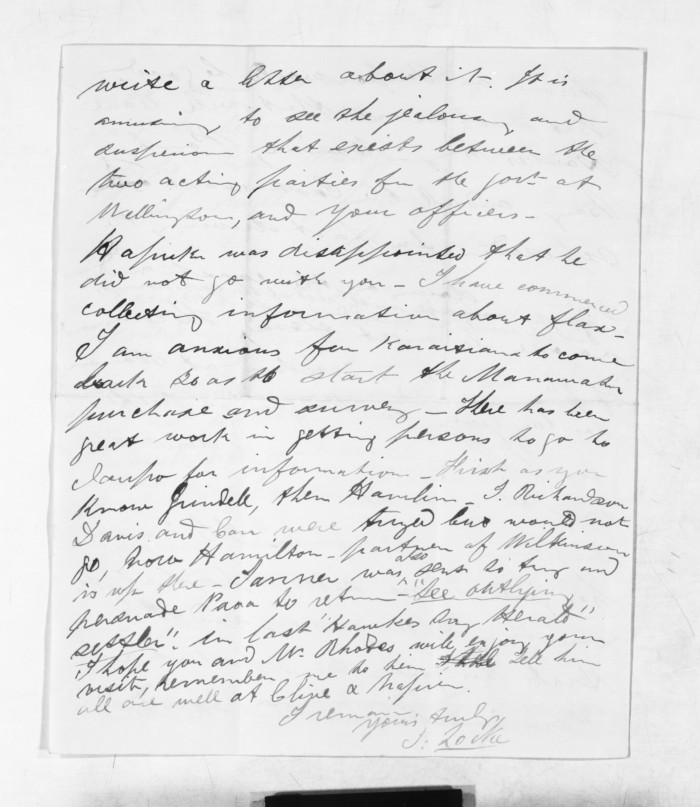 write a letter about it. It is
amusing to see the jealousy and
suspicion that exists between the
two acting parties for the Govt at
Wellington, and your officers -
was disappointed that he
did not go with you - I have commenced
collecting information about flax -
I am anxious for Karaitiana to come
back so as to start the Manawatu
purchase and survey - There has been
great work in getting persons to go to
Taupo for information - First as you
know Grindell, then Hamlin - J. Richardson
Davis and Carr were tryed but would not
go, now Hamilton - partner of Wilkinson
is up there - Tanner was also sent to try and
persuade Paora to return - "See outlying
settler". in last "Hawkes Bay Herald"
I hope you and Mr Rhodes will enjoy your
visit, remember me to him tell him
all are well at Clive & Napier.
I remain
Yours truly
S: Locke